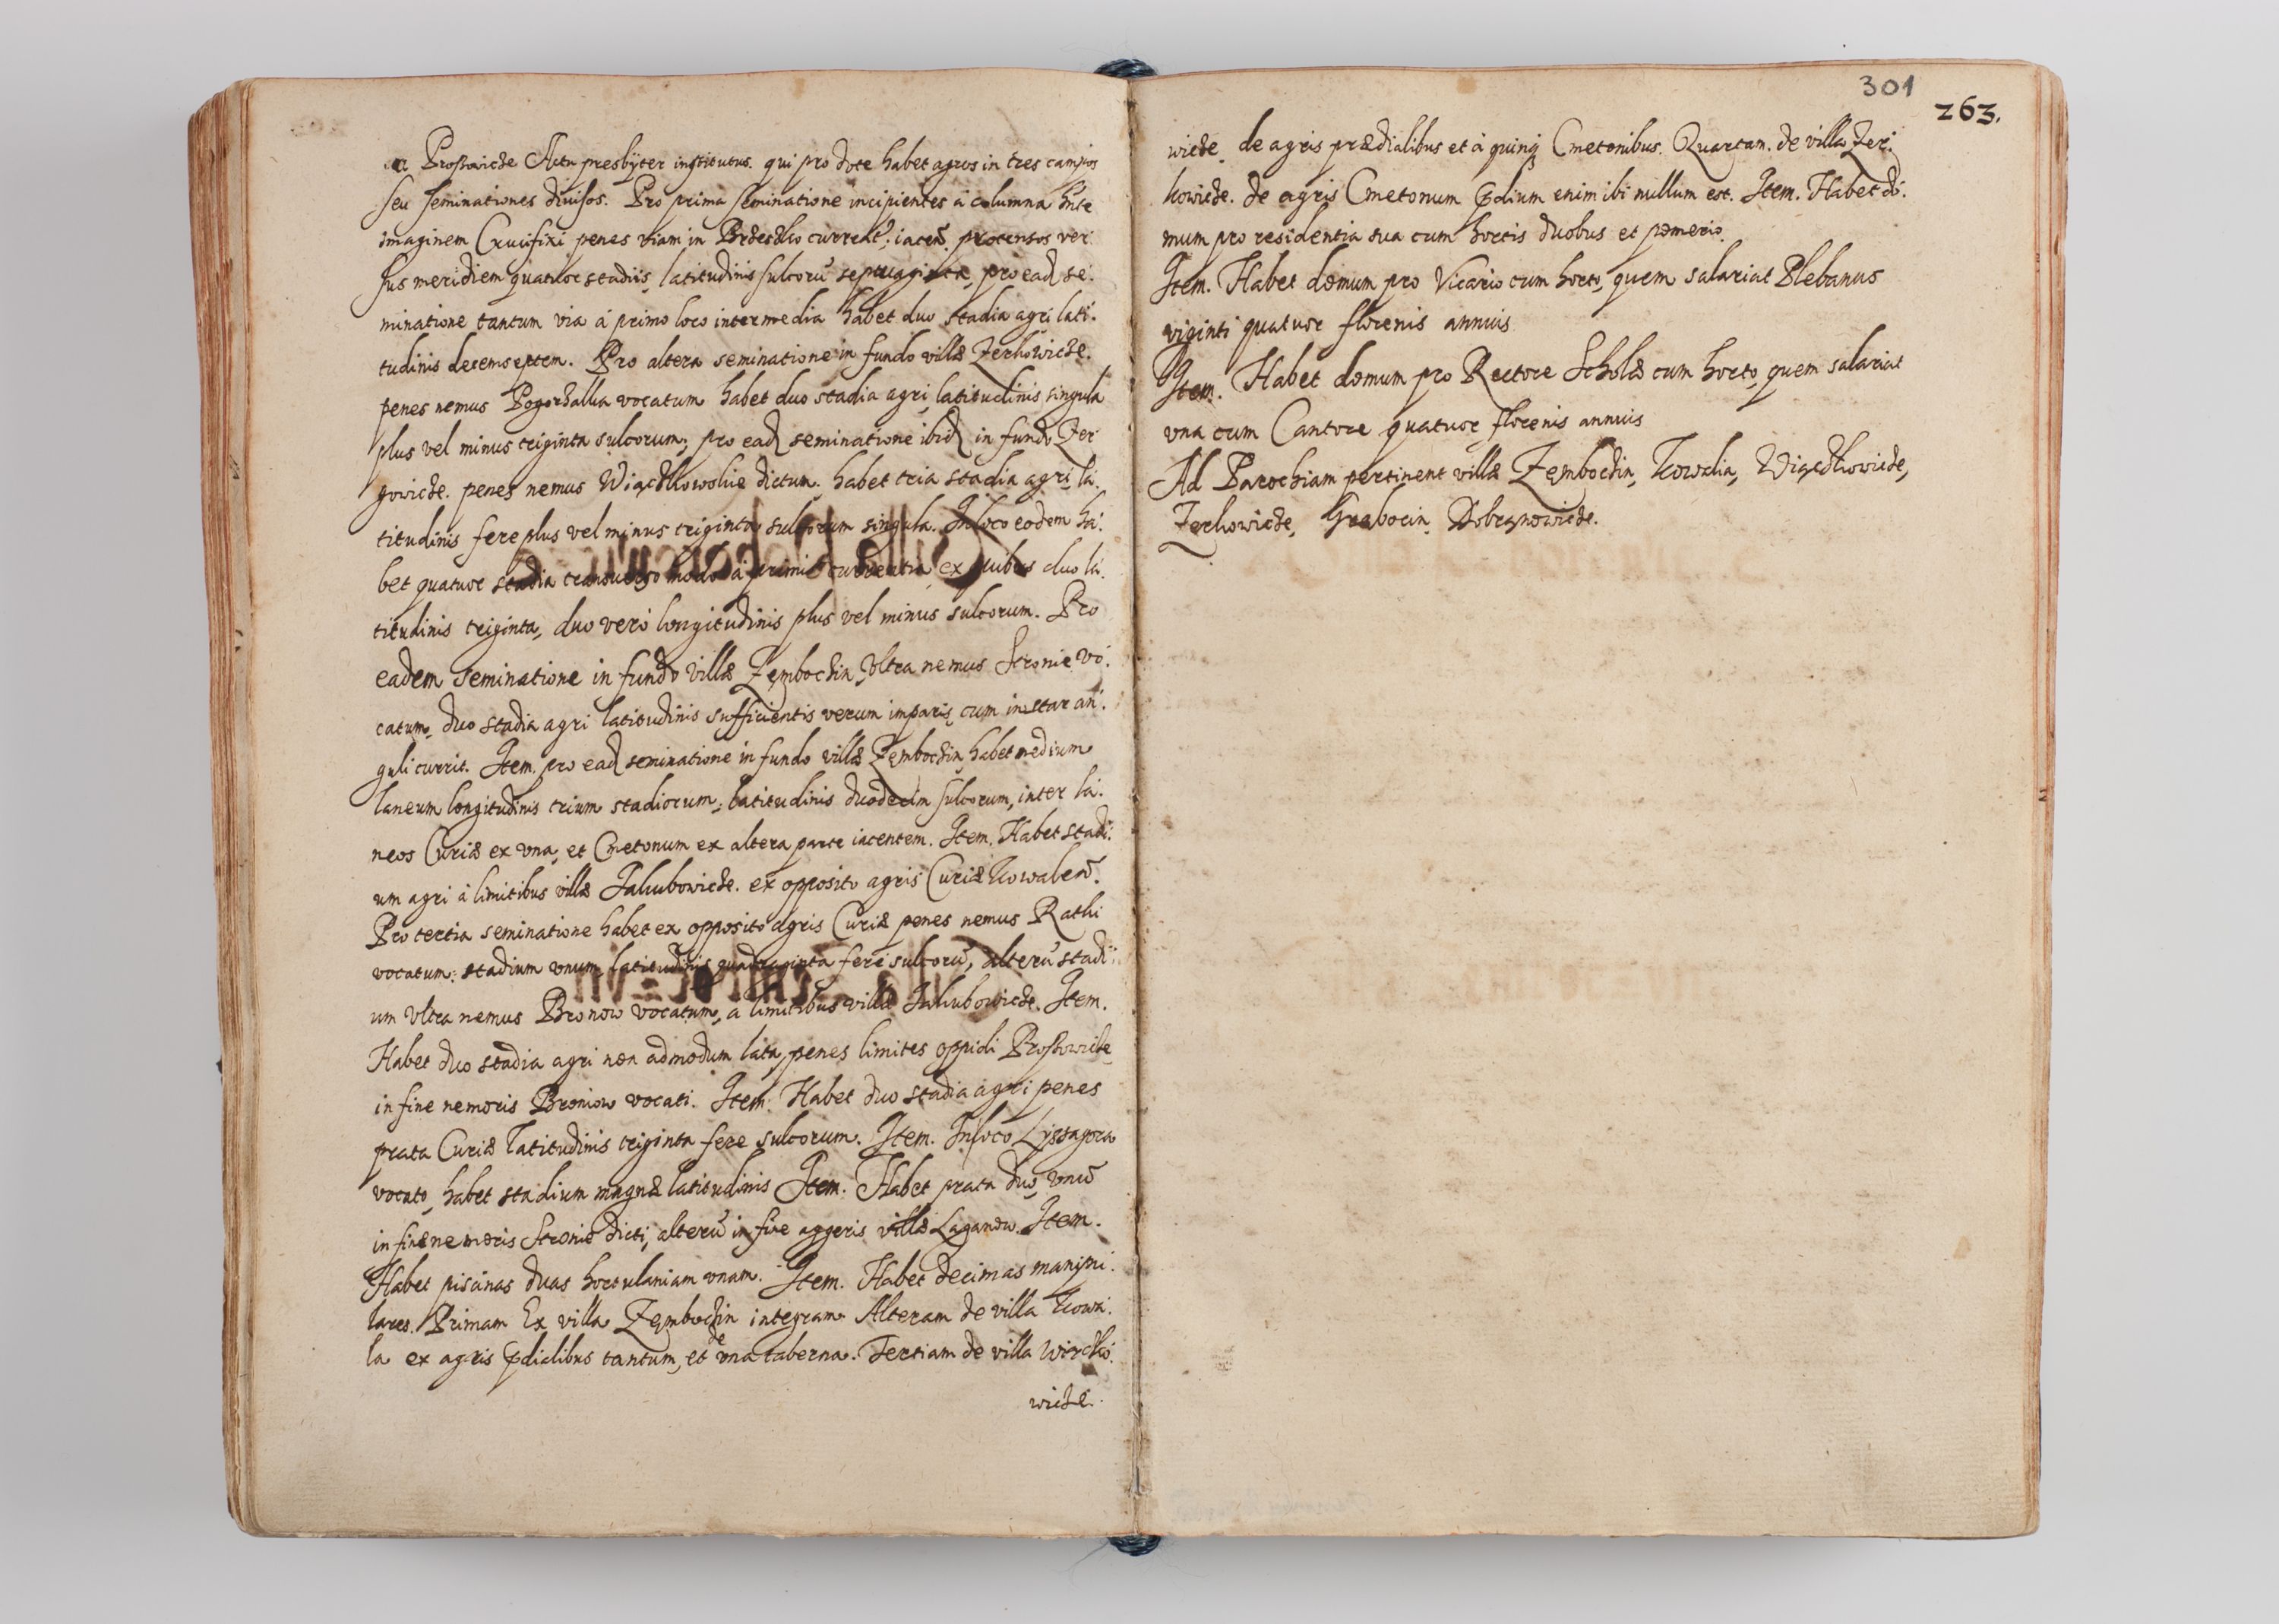 a Proszowicze Actu presbÿter institutus. qui pro dote habet agros in tres campos
seu seminationes divisos. Pro prima seminatione incipientes à columna hñte
imaginem Crucifixi penes viam in currentẽ: iaceñ. protensos ver
sus meridiem quatuor stadiis, latitudinis sulcorũ septuaginta, pro ead se:
minatione tantum via à primo loco intermedia habet duo stadia agri lati:
tudinis decemseptem. Pro altera seminatione in fundo villæ Zerkowicze.
penes nemus Pogorzalka vocatum habet duo stadia agri, latitudinis singula
plus vel minus triginta sulcorum; pro ead seminatione ibid in fundo Zer
gowicze. penes nemus Wiączkowskie dictum. habet tria stadia agri, la:
titudinis fere plus vel minus triginta sulcorum singula. In loco eodem ha:
bet quatuor stadia transverso modo à primis currentia ex quibus duo la:
titudinis triginta, duo verò longitudinis plus vel minus sulcorum. Pro
eadem seminatione in fundo villæ Zęmboczin, Vltra nemus Stronie vo:
catum, duo stadia agri latitudinis sufficientis verum imparis, cum instar an:
guli currit. Item. pro ead seminatione in fundo villæ Zęmboczin, habet medium
laneum longitudinis trium stadiorum, latitudinis duodecim sulcorum, inter la:
neos Curiæ ex vna, et Cmetonum ex altera parte iacentem. Item. Habet stadi:
um agri à limitibus villæ Jakubowicze. ex opposito agris Curiæ Kowaleñ.
Pro tertia seminatione habet ex opposito agris Curiæ penes nemus Rathi
vocatum: stadium vnum latitudinis quadraginta ferè sulcorũ, alterũ stadi:
um Vltra nemus Bronow vocatum, a limitibus villæ Jakubowicze. Item.
Habet duo stadia agri non admodum lata, penes limites oppidi Proszowicze
in fine nemoris Broniow vocati. Item. Habet duo stadia agri penes
prata Curiæ latitudinis triginta fere sulcorum. Item. In loco Lyssagora
vocato, habet stadium magnæ latitudinis Item. Habet prata duo, vnũ
in fine nemoris Stronie dicti, alterũ in fine aggeris villæ Łaganow. Item.
Habet piscinas duas hortulaniam vnam. Item. Habet decimas manipu:
lares. Primam Ex villa Zęmboczin integram Alteram de villa Kowa:
la ex agris ꝓdialibus tantum, et de vna taberna. Tertiam de villa Wirczko:
wicze.
301
263.
wicze de agris prædialibus et à quinqꝫ Cmetonibus. Quartam. de villa Zer:
kowicze. de agris Cmetonum ꝓdium enim ibi nullum est. Item. Habet do:
mum pro residentia sua cum hortis duobus et pomerio.
Item. Habet domum pro Vicario cum horto, quem salariat Plebanus
viginti quatuor florenis annuis
Item. Habet domum pro Rectore Scholæ cum horto, quem salariat
vna cum Cantore quatuor florenis annuis
Ad Parochiam pertinent villæ Zęmboczin, Kowalia, Wiączkowicze,
Zerkowicze, Grębocin, Dobranowicze.